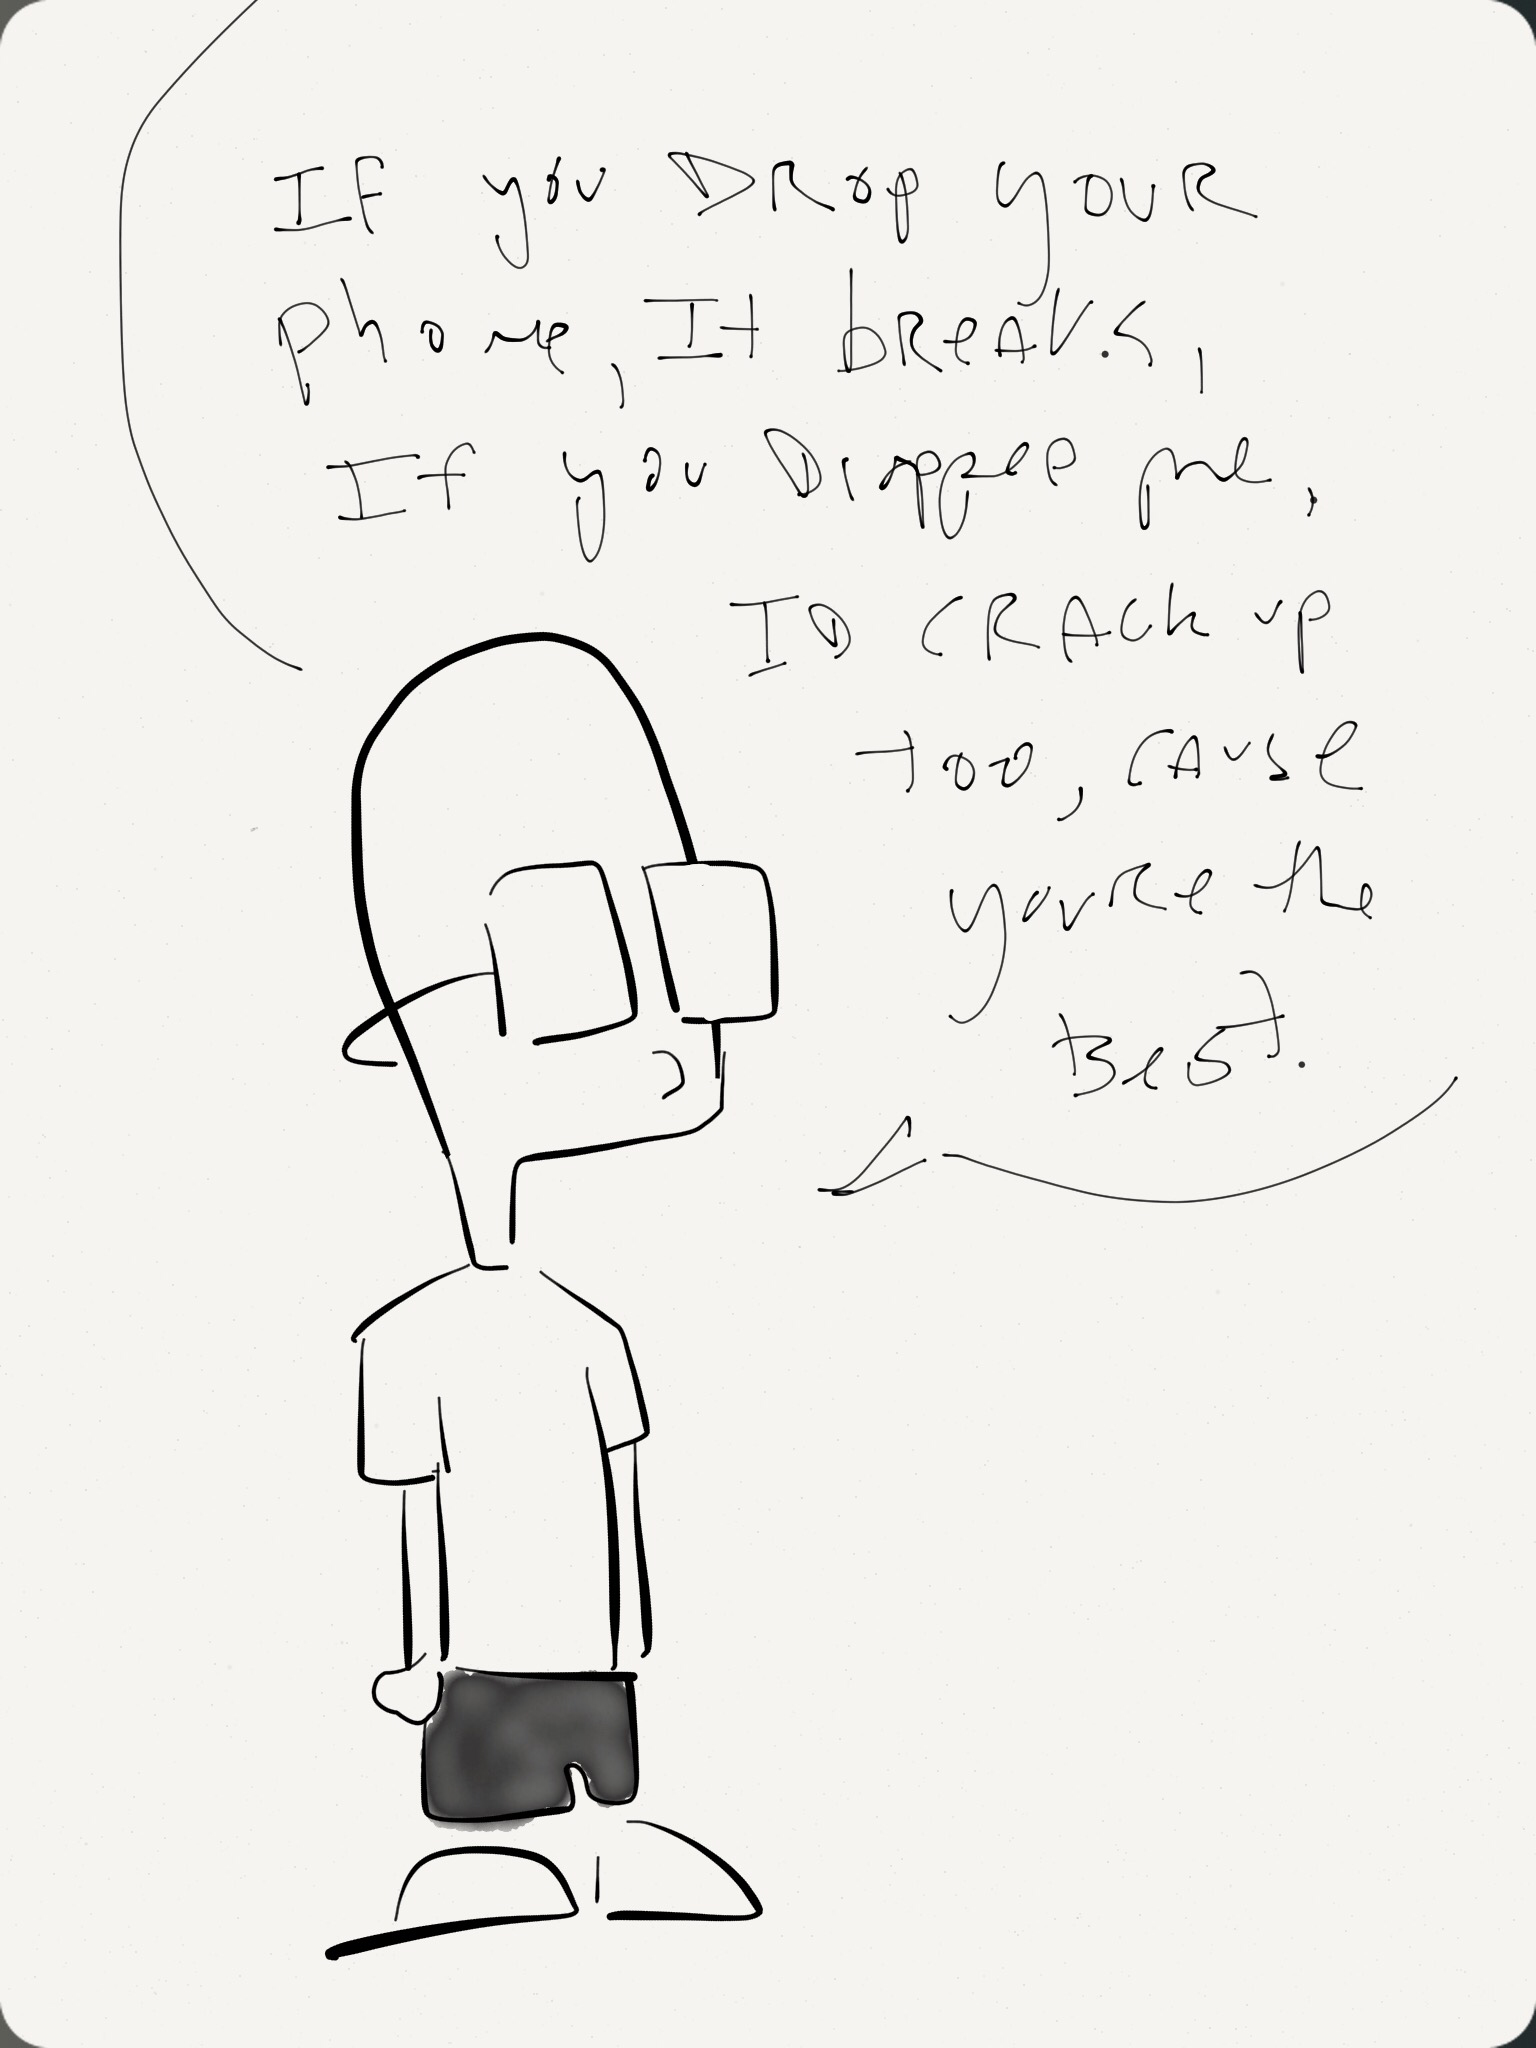 If you DRop youR
phone, It bReAks,
If you Dropped me,
ID CRAck up
too, cause
youRe the
Best.